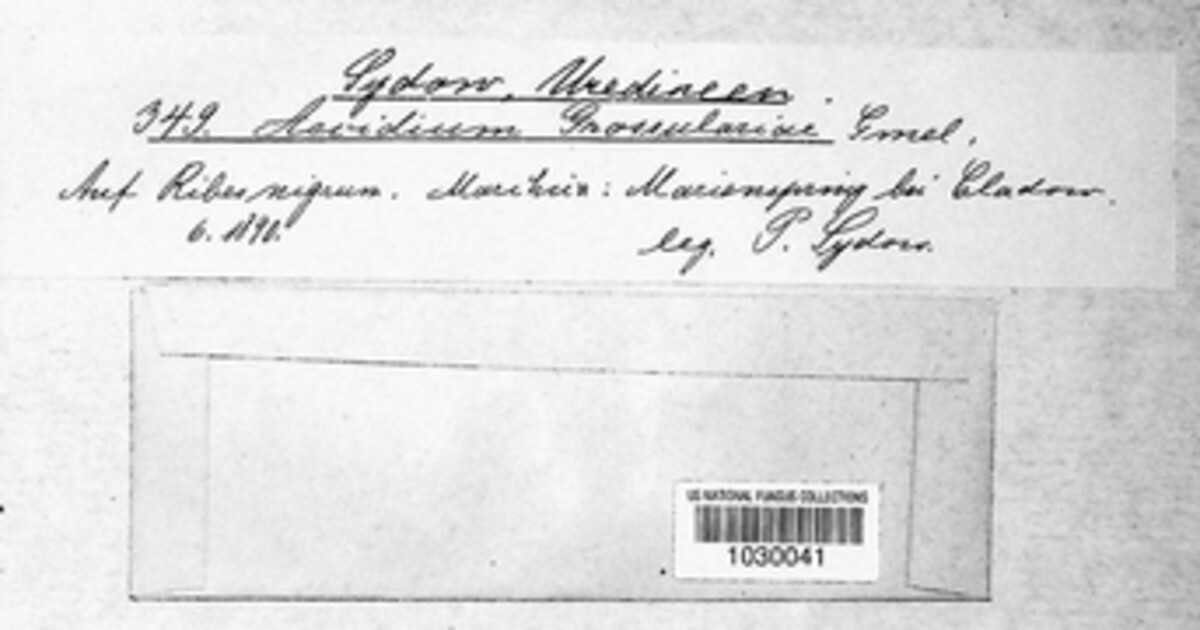 Sydow, Uredineen.
349. Aecidium Grossulariae Gmel.
Auf Ribes nigrum. Marienspring bei Cladow.
6. 1890.
leg. P. Sydow.
US NATIONAL FUNGUS COLLECTIONS
1030041